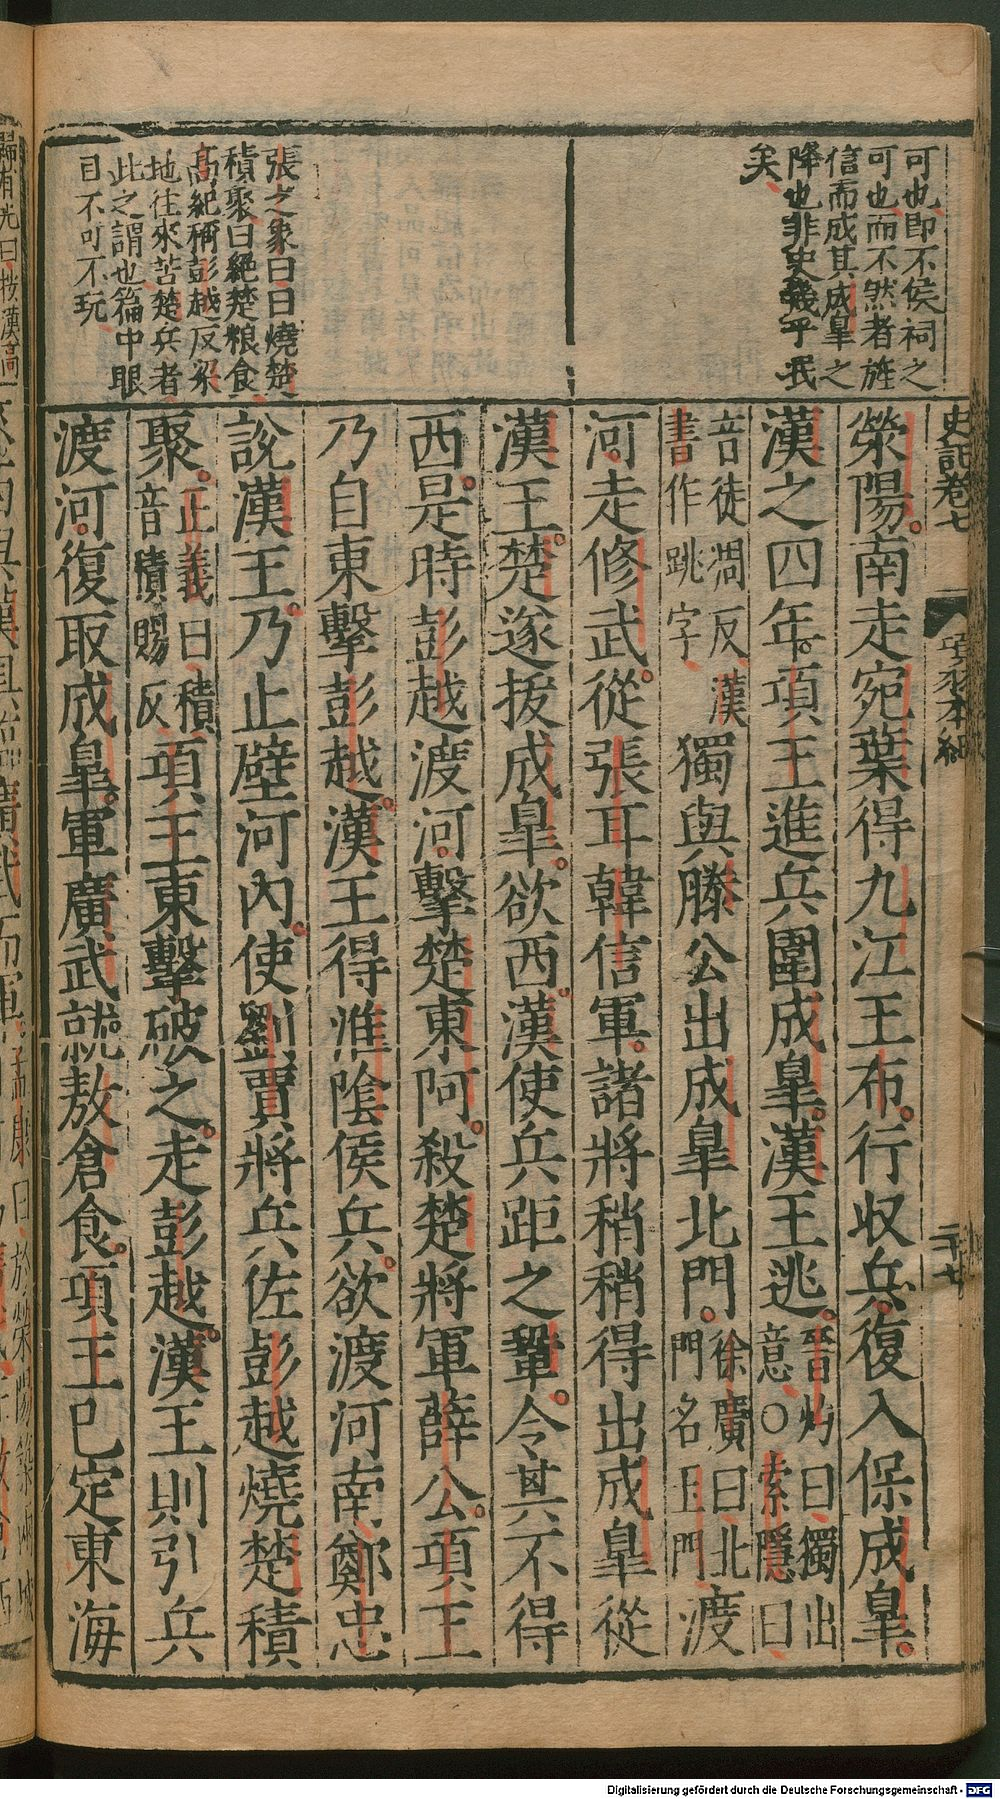 史記卷七 項羽本紀 二十七
可也即不侯祠之
可也而不然者旌
信而成其成臯之
降也非史幾乎民
矣
張之象曰曰燒楚
積聚曰絕楚粮食
高紀稱彭越反梁
地往來苦楚兵者
此之謂也篇中眼
目不可不玩
滎陽南走宛葉得九江王布行收兵復入保成臯
漢之四年項王進兵圍成臯漢王逃晉灼曰獨出意〇索隱曰
音徒凋反漢書作跳字獨與滕公出成臯北門徐廣曰北門名玉門渡
河走修武從張耳韓信軍諸將稍稍得出成臯從
漢王楚遂拔成臯欲西漢使兵距之鞏令其不得
西是時彭越渡河擊楚東阿殺楚將軍薛公項王
乃自東擊彭越漢王得淮陰侯兵欲渡河南鄭忠
說漢王乃止壁河內使劉賈將兵佐彭越燒楚積
聚正義曰積音積賜反項王東擊破之走彭越漢王則引兵
渡河復取成臯軍廣武就敖倉食項王已定東海
Digitalisierung gefördert durch die Deutsche Forschungsgemeinschaft - DFG